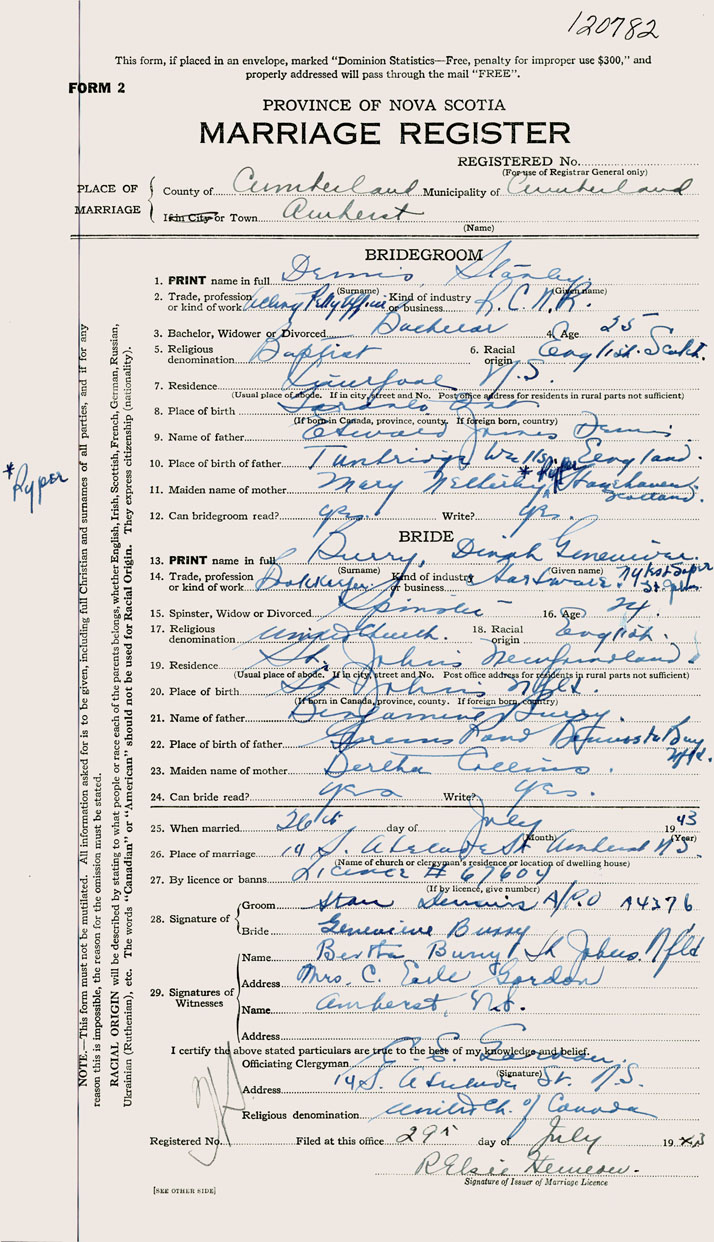 120782
This form, if placed in an envelope, marked "Dominion Statistics—Free, penalty for improper use $300," and
properly addressed will pass through the mail "FREE".
FORM 2
PROVINCE OF NOVA SCOTIA
MARRIAGE REGISTER
REGISTERED No.
(For use of Registrar General only)
PLACE OF MARRIAGE
County of Cumberland Municipality of Cumberland
If in City or Town Amherst
(Name)
BRIDEGROOM
1. PRINT name in full Dennis, Stanley.
(Surname) (Given name)
2. Trade, profession or kind of work Acting Petty Officer Kind of industry or business R.C.N.R.
3. Bachelor, Widower or Divorced Bachelor 4. Age 25
5. Religious denomination Baptist 6. Racial origin English. Scotch.
7. Residence Liverpool N.S.
(Usual place of abode. If in city, street and No. Post office address for residents in rural parts not sufficient)
8. Place of birth Toronto Ont
(If born in Canada, province, county. If foreign born, country)
9. Name of father Oswald James Dennis
10. Place of father Tunbridge Wells, England.
* Ryper
11. Maiden name of mother Mary Netherley Stonehaven Scotland.
12. Can bridegroom read? yes. Write? yes.
BRIDE
13. PRINT name in full Burry, Dinah Genevieve.
(Surname) (Given name)
14. Trade, profession or kind of work Bookkeeper Kind of industry or business Hardware. St. Johns
15. Spinster, Widow or Divorced Spinster 16. Age 24
17. Religious denomination United Church. 18. Racial origin English.
19. Residence St. Johns Newfoundland.
(Usual place of abode. If in city, street and No. Post office address for residents in rural parts not sufficient)
20. Place of birth St Johns Nfld.
(If born in Canada, province, county. If foreign born, country)
21. Name of father Benjamin Burry.
22. Place of birth of father Greens Pond Bonavista Bay Nfld.
23. Maiden name of mother Bertha Collins.
24. Can bride read? yes Write? yes.
25. When married 26th day of July 1943
(Month) (Year)
26. Place of marriage 14 S. Adelaide St Amherst N.S.
(Name of church or clergyman's residence or location of dwelling house)
27. By licence or banns Licence # 67604
(If by licence, give number)
28. Signature of
Groom Stan Dennis A/P.O A4376
Bride Genevieve Burry
29. Signatures of Witnesses
Name Bertha Burry St Johns Nfld
Address Mrs. C. Earle Gordon
Name Amherst, N.S.
Address
I certify the above stated particulars are true to the best of my knowledge and belief.
Officiating Clergyman C. E. Gordon.
(Signature)
Address 14 S. Adelaide St. N.S.
Religious denomination United Ch. of Canada
Registered No. Filed at this office 29th day of July 1943
R Elsie
Signature of Issuer of Marriage Licence
[SEE OTHER SIDE]
* Ryper
NOTE.—This form must not be mutilated. All information asked for is to be given, including full Christian and surnames of all parties, and if for any
reason this is impossible, the reason for the omission must be stated.
RACIAL ORIGIN will be described by stating to what people or race each of the parents belongs, whether English, Irish, Scottish, French, German, Russian,
Ukrainian (Ruthenian), etc. The words "Canadian" or "American" should not be used for Racial Origin. They express citizenship (nationality).